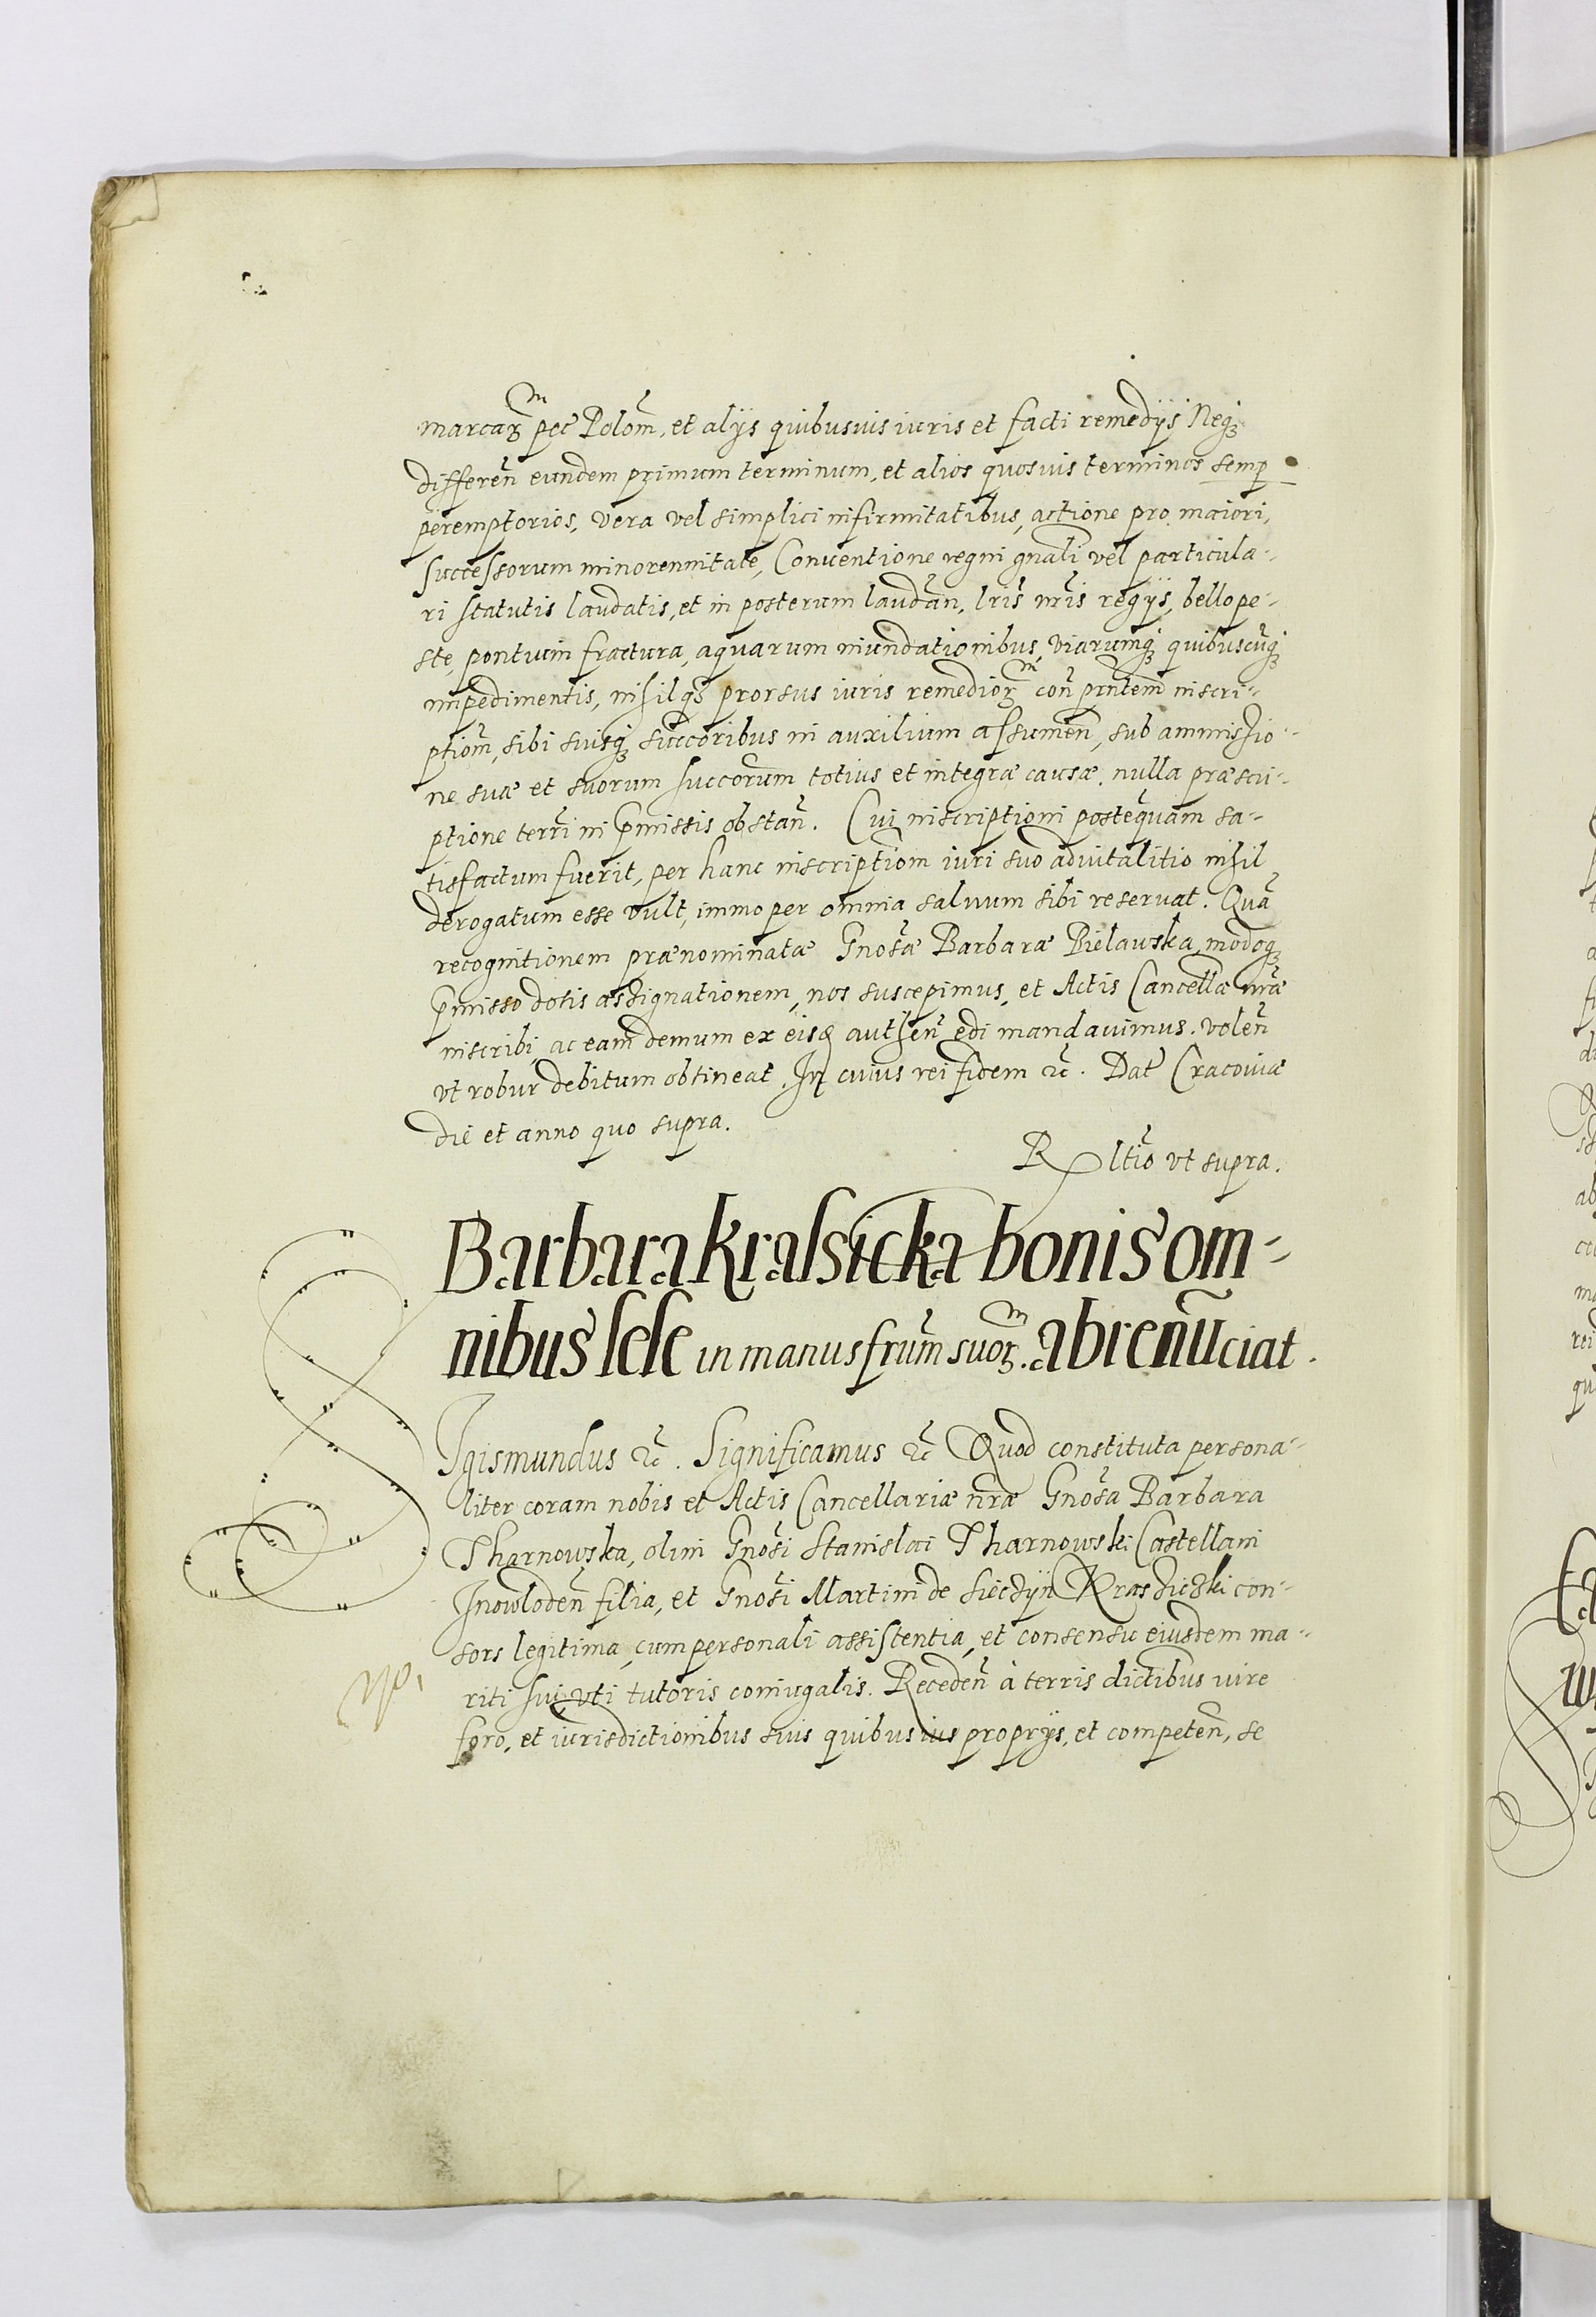 marcarꝫ pec Polom̃, et alijs quibusuis iuris et facti remedijs Neqꝫ
differen̄ eundem primum terminum, et alios quosuis terminos semp
peremptorios, vera vel simplici infirmitatibus, actione pro maiori,
successorum minorennitate, Conuentione regni gnali vel particula-
ri statutis laudatis, et in posterum laudan̄, lris nris regijs, bello pe-
ste, pontium fractura, aquarum inundationibus, viarumqꝫ quibuscūqꝫ
impedimentis, nihilqꝫ prorsus iuris remediorꝫ con̄ pntem inscri-
ptiom̄, sibi suisqꝫ succoribus in auxilium assumen̄, sub ammissio-
ne suæ et suorum succorum totius et integræ causæ, nulla præscri-
ptione terri in p̄missis obstan̄. Cui inscriptioni posteq̄uam sa-
tisfactum fuerit, per hanc inscriptiom iuri suo aduitalitio nihil
derogatum esse vult, immo per omnia saluum sibi reseruat. Quā
recognitionem prænominatæ Gnosæ Barbaræ Bielawska modoqꝫ
p̄misso dotis assignationem, nos suscepimus, et Actis Cancellæ nræ
inscribi, ac eam demum ex eisd authen̄ edi mandauimus. volen̄
vt robur debitum obtineat. In cuius rei fidem ꝛc. Dat Cracouiæ
die et anno quo supra.
Rltio vt supra.
Barbara Krassicka bonis om-
nibus sese in manus frum suorꝫ. abrenūciat.
Sigismundus ꝛc. Significamus ꝛc Quod constituta persona-
liter coram nobis et Actis Cancellariæ nræ Gnosa Barbara
Tharnowska, olim Gnosi Stanislai Tharnowski Castellani
Inowloden̄ filia, et Gnosi Martini de Siecżyn Krasżicżki con-
sors legitima, cum personali assistentia, et consensu eiusdem ma-
riti sui vti tutoris coniugalis. Receden̄ à terris dictibus iure
foro, et iurisdictionibus suis quibusuis proprijs, et competen̄, se